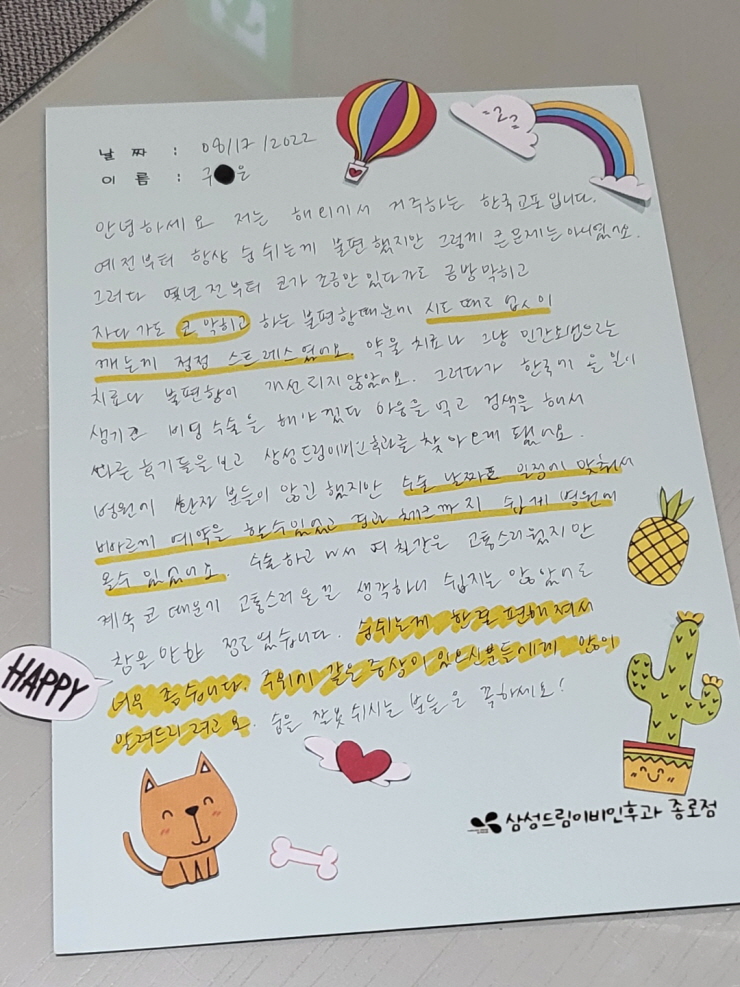 날 짜 : 08/17/2022
이 름 : 구 은
안녕하세요 저는 해외에서 거주하는 한국교포입니다.
예전부터 항상 숨쉬는게 불편했지만 그렇게 큰문제는아니였어요.
그러다 몇년전부터 코가 조금만 있다가도 금방막히고
자다가도 코 막히고 하는 불편함때문에 시도 때도 없이
깨는게 점점 스트레스였어요. 약물치료나 그냥 민간요법으로는
치료나 불편함이 개선되지않았어요. 그러다가 한국에 올 일이
생기고 비염수술을 해야겠다 마음을 먹고 검색을 해서
다른 후기들을 보고 삼성드림이비인후과를 찾아오게 됐어요.
병원에 환자 분들이 많긴 했지만 수술 날짜도 일정에 맞춰서
빠르게 예약을 할수있었고 경과 체크까지 쉽게 병원에
올수 있었어요. 수술하고 나서 며칠간은 고통스러웠지만
계속 코 때문에 고통스러울걸 생각하니 쉽지는 않았어도
참을만한 정도였습니다. 숨쉬는게 한결 편해져서
너무 좋습니다. 주위에 같은증상이 있으신분들에게 많이
알려드리려고요. 숨을 잘못쉬시는 분들은 꼭하세요!
HAPPY
삼성드림이비인후과 종로점